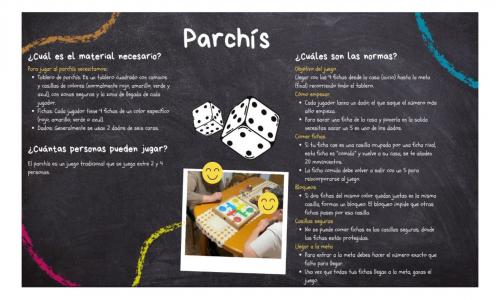 Parchís
¿Cuál es el material necesario?
Para jugar al parchís necesitamos:
Tablero de parchís: Es un tablero cuadrado con caminos
y casillas de colores (normalmente rojo, amarillo, verde y
azul), con zonas seguras y la zona de llegada de cada
jugador.
Fichas: Cada jugador tiene 4 fichas de un color específico
(rojo, amarillo, verde o azul).
Dados: Generalmente se usan 2 dados de seis caras.
¿Cuántas personas pueden jugar?
El parchís es un juego tradicional que se juega entre 2 y 4
personas.
¿Cuáles son las normas?
Objetivo del juego
Llegar con las 4 fichas desde la casa (inicio) hasta la meta
(final) recorriendo todo el tablero.
Cómo empezar
Cada jugador lanza un dado; el que saque el número más
alto empieza.
Para sacar una ficha de la casa y ponerla en la salida
necesitas sacar un 5 en uno de los dados.
Comer fichas
Si tu ficha cae en una casilla ocupada por una ficha rival,
esta ficha es "comida" y vuelve a su casa, se te añades
20 movimientos.
La ficha comida debe volver a salir con un 5 para
reincorporarse al juego.
Bloqueos
Si dos fichas del mismo color quedan juntas en la misma
casilla, forman un bloqueo. El bloqueo impide que otras
fichas pasen por esa casilla.
Casillas seguras
No se puede comer fichas en las casillas seguras, donde
las fichas están protegidas.
Llegar a la meta
Para entrar a la meta debes hacer el número exacto que
falta para llegar.
Una vez que todas tus fichas lleguen a la meta, ganas el
juego.